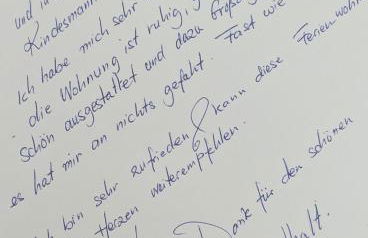 und
Kindesmann
Ich habe mich sehr
die Wohnung ist ruhig,
schön ausgestattet und dazu
es hat mir an nichts gefehlt. Fast wie
bin sehr zufrieden & kann diese Ferienwohn
Herzen weiterempfehlen.
Dank für den schönen
halt.